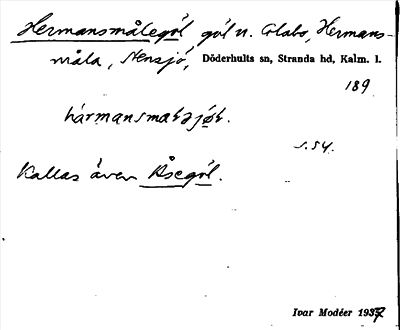 Hermansmålegöl göl n. Glabo, Hermans-
måla, Stensjö, Döderhults sn, Stranda hd, Kalm. l.
189
s.54.
Kallas även Åsegöl.
Ivar Modéer 1937